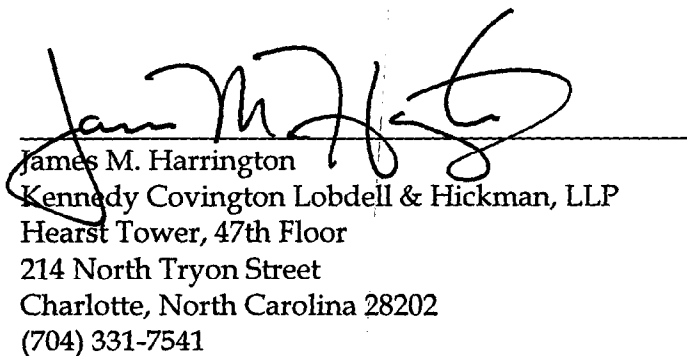 James M. Harrington
James M. Harrington
Kennedy Covington Lobdell & Hickman, LLP
Hearst Tower, 47th Floor
214 North Tryon Street
Charlotte, North Carolina 28202
(704) 331-7541